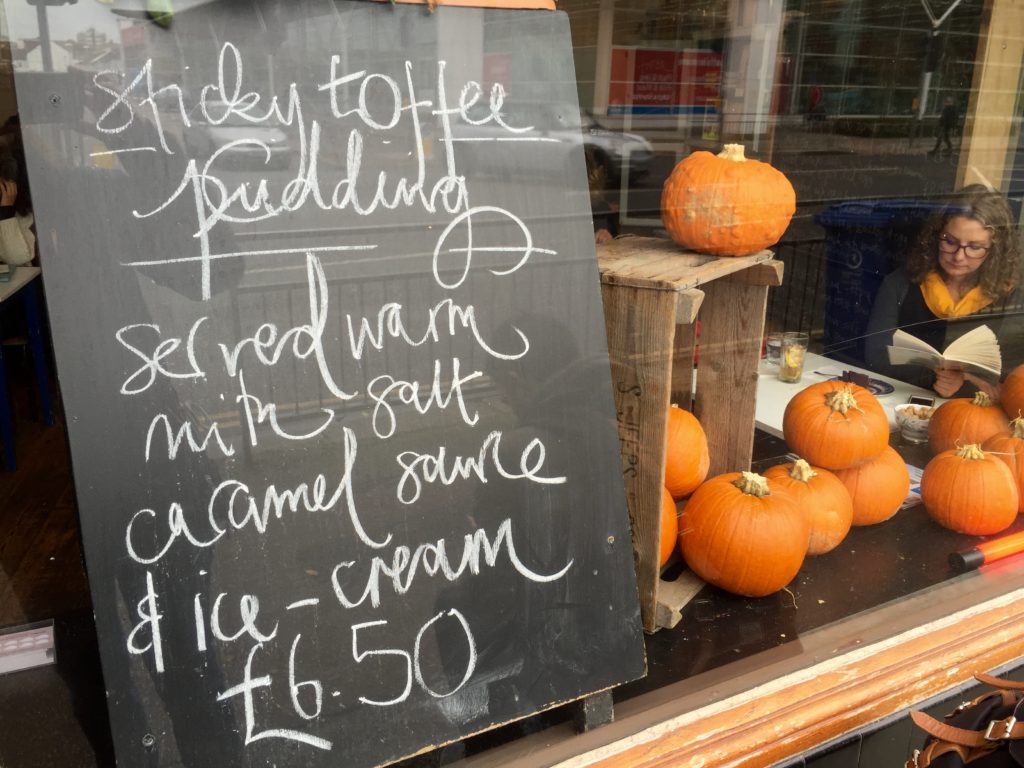 sticky toffee
pudding
served warm
with salt
caramel sauce
& ice-cream
£6.50